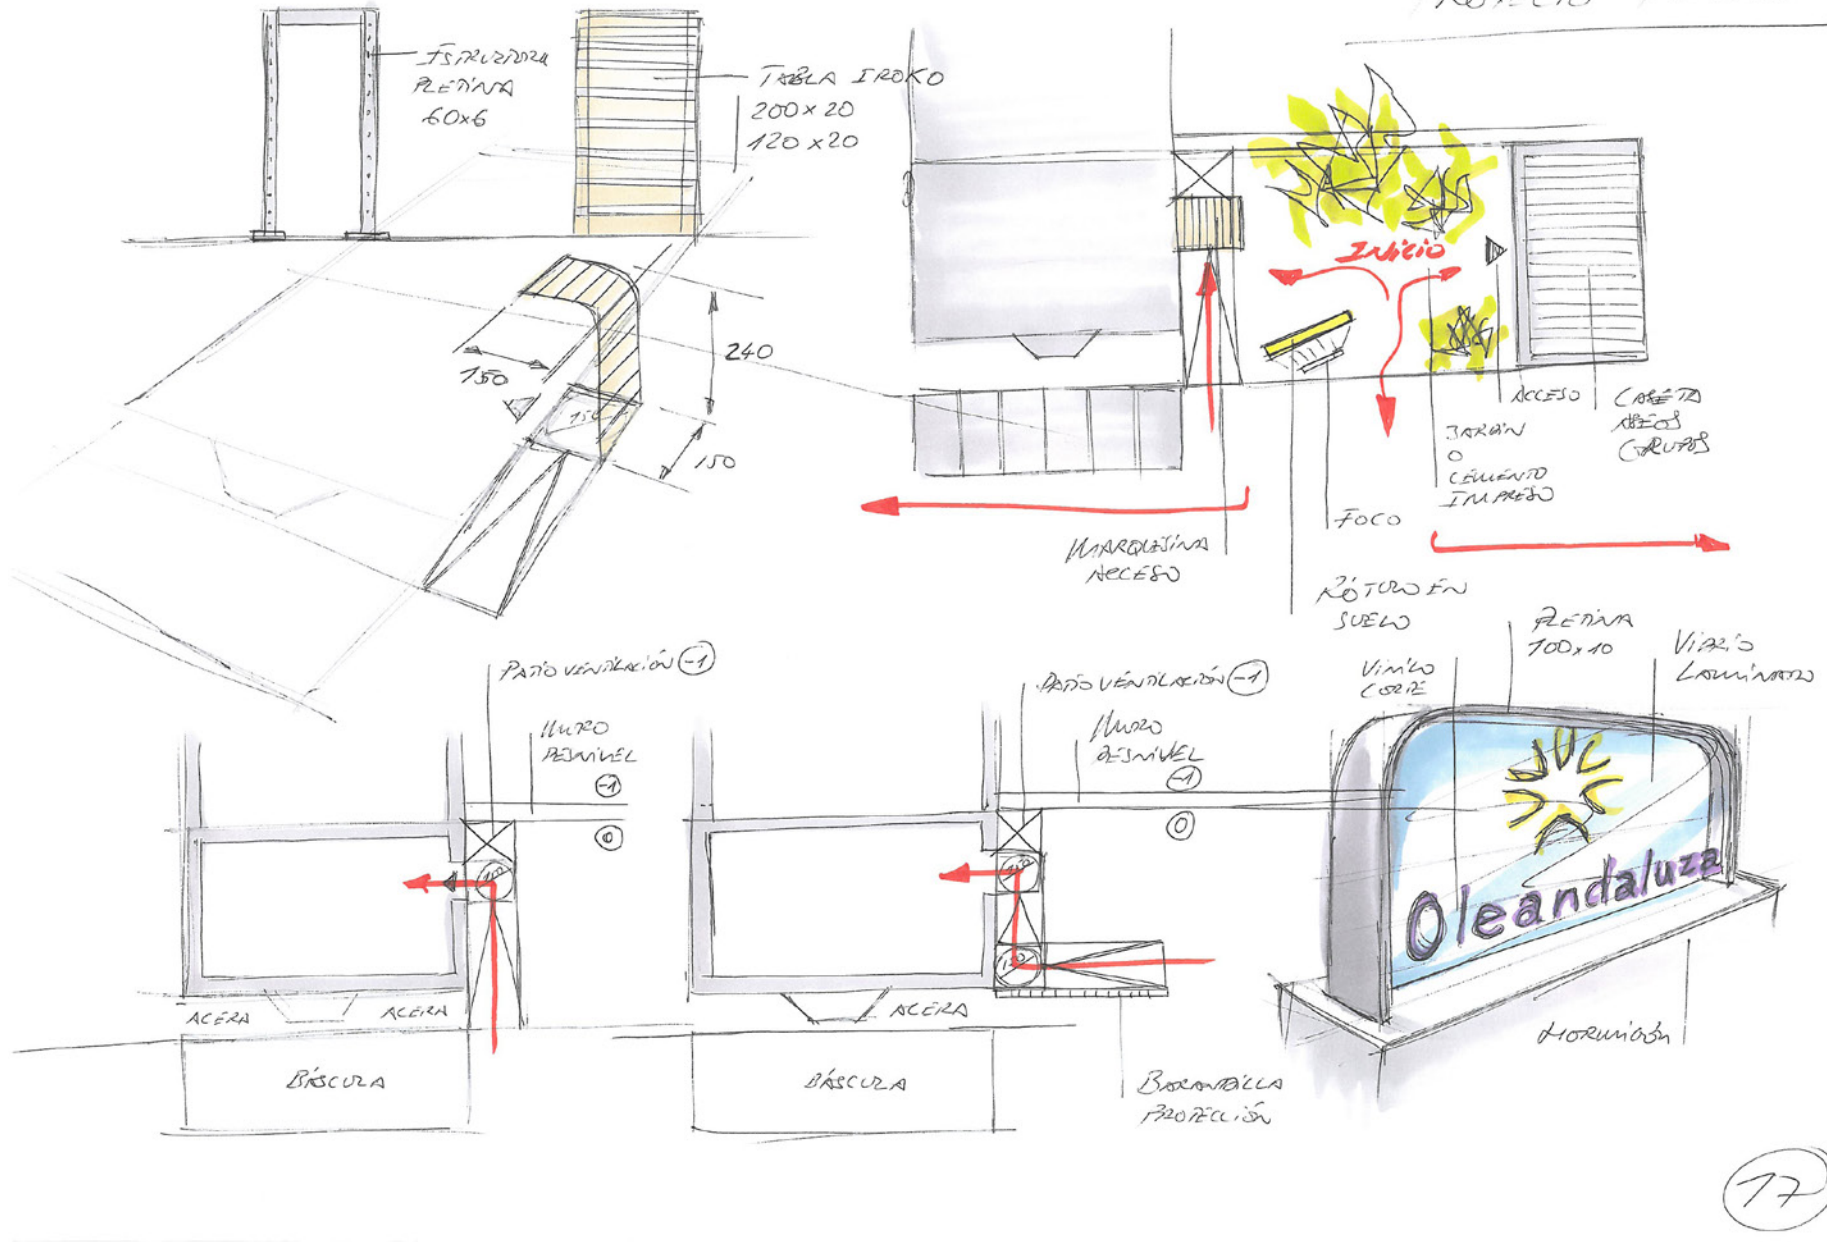 PROYECTO
ESTRUCTURA
PLETINA
60x6
TABLA IROKO
200x20
120x20
240
150
150
150
INICIO
ACCESO
CASETA
ASEOS
GRUPOS
JARDÍN
O
CEMENTO
IMPRESO
FOCO
MARQUESINA
ACCESO
RÓTULO EN
SUELO
PLETINA
100x10
VIDRIO
LAMINADO
VINILO
CORTE
PATIO VENTILACIÓN -1
MURO
DESNIVEL
-1
0
150
ACERA
ACERA
BÁSCULA
PATIO VENTILACIÓN -1
MURO
DESNIVEL
-1
0
150
150
ACERA
BÁSCULA
BARANDILLA
PROTECCIÓN
Oleandaluza
HORMIGÓN
17